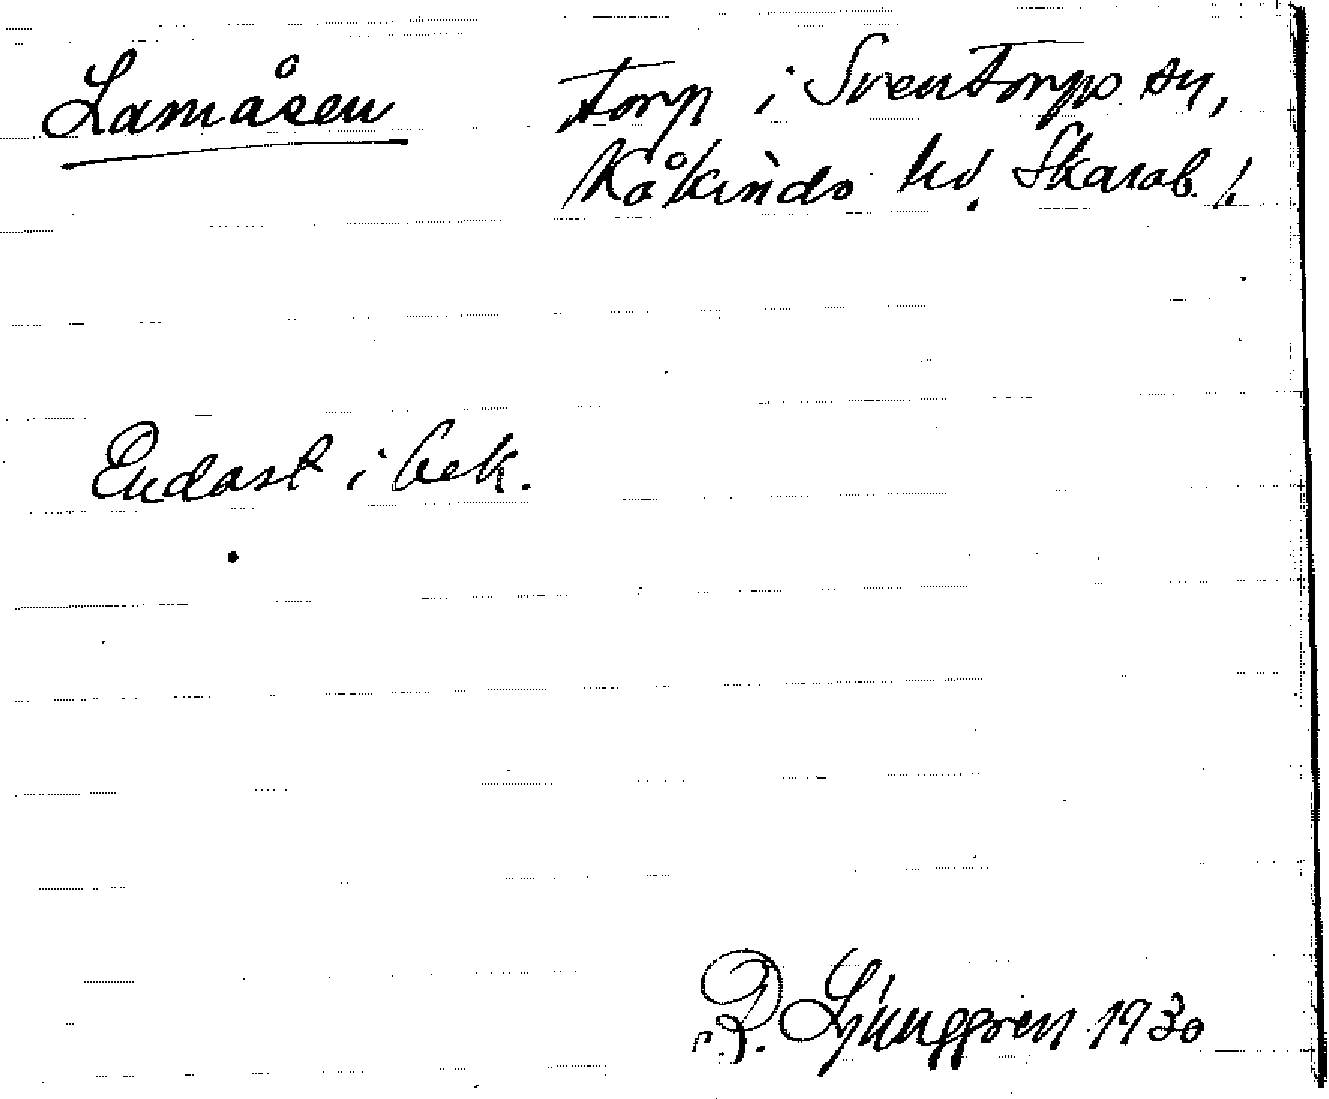 Lamåsen torp i Sventorps sn,
Kåkinds hd. Skarab. l.
Endast i bek.
R. Ljunggren 1930